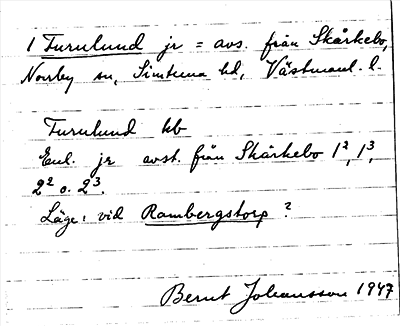 1 Turulund jr = avs. från Skårkebo,
Norrby sn, Simtuna hd, Västmanl. l.
Turulund kb
Enl. jr avst. från Skårkebo 1², 1³,
2² o. 2³.
Läge: vid Rambergstorp?
Bernt Johansson 1947